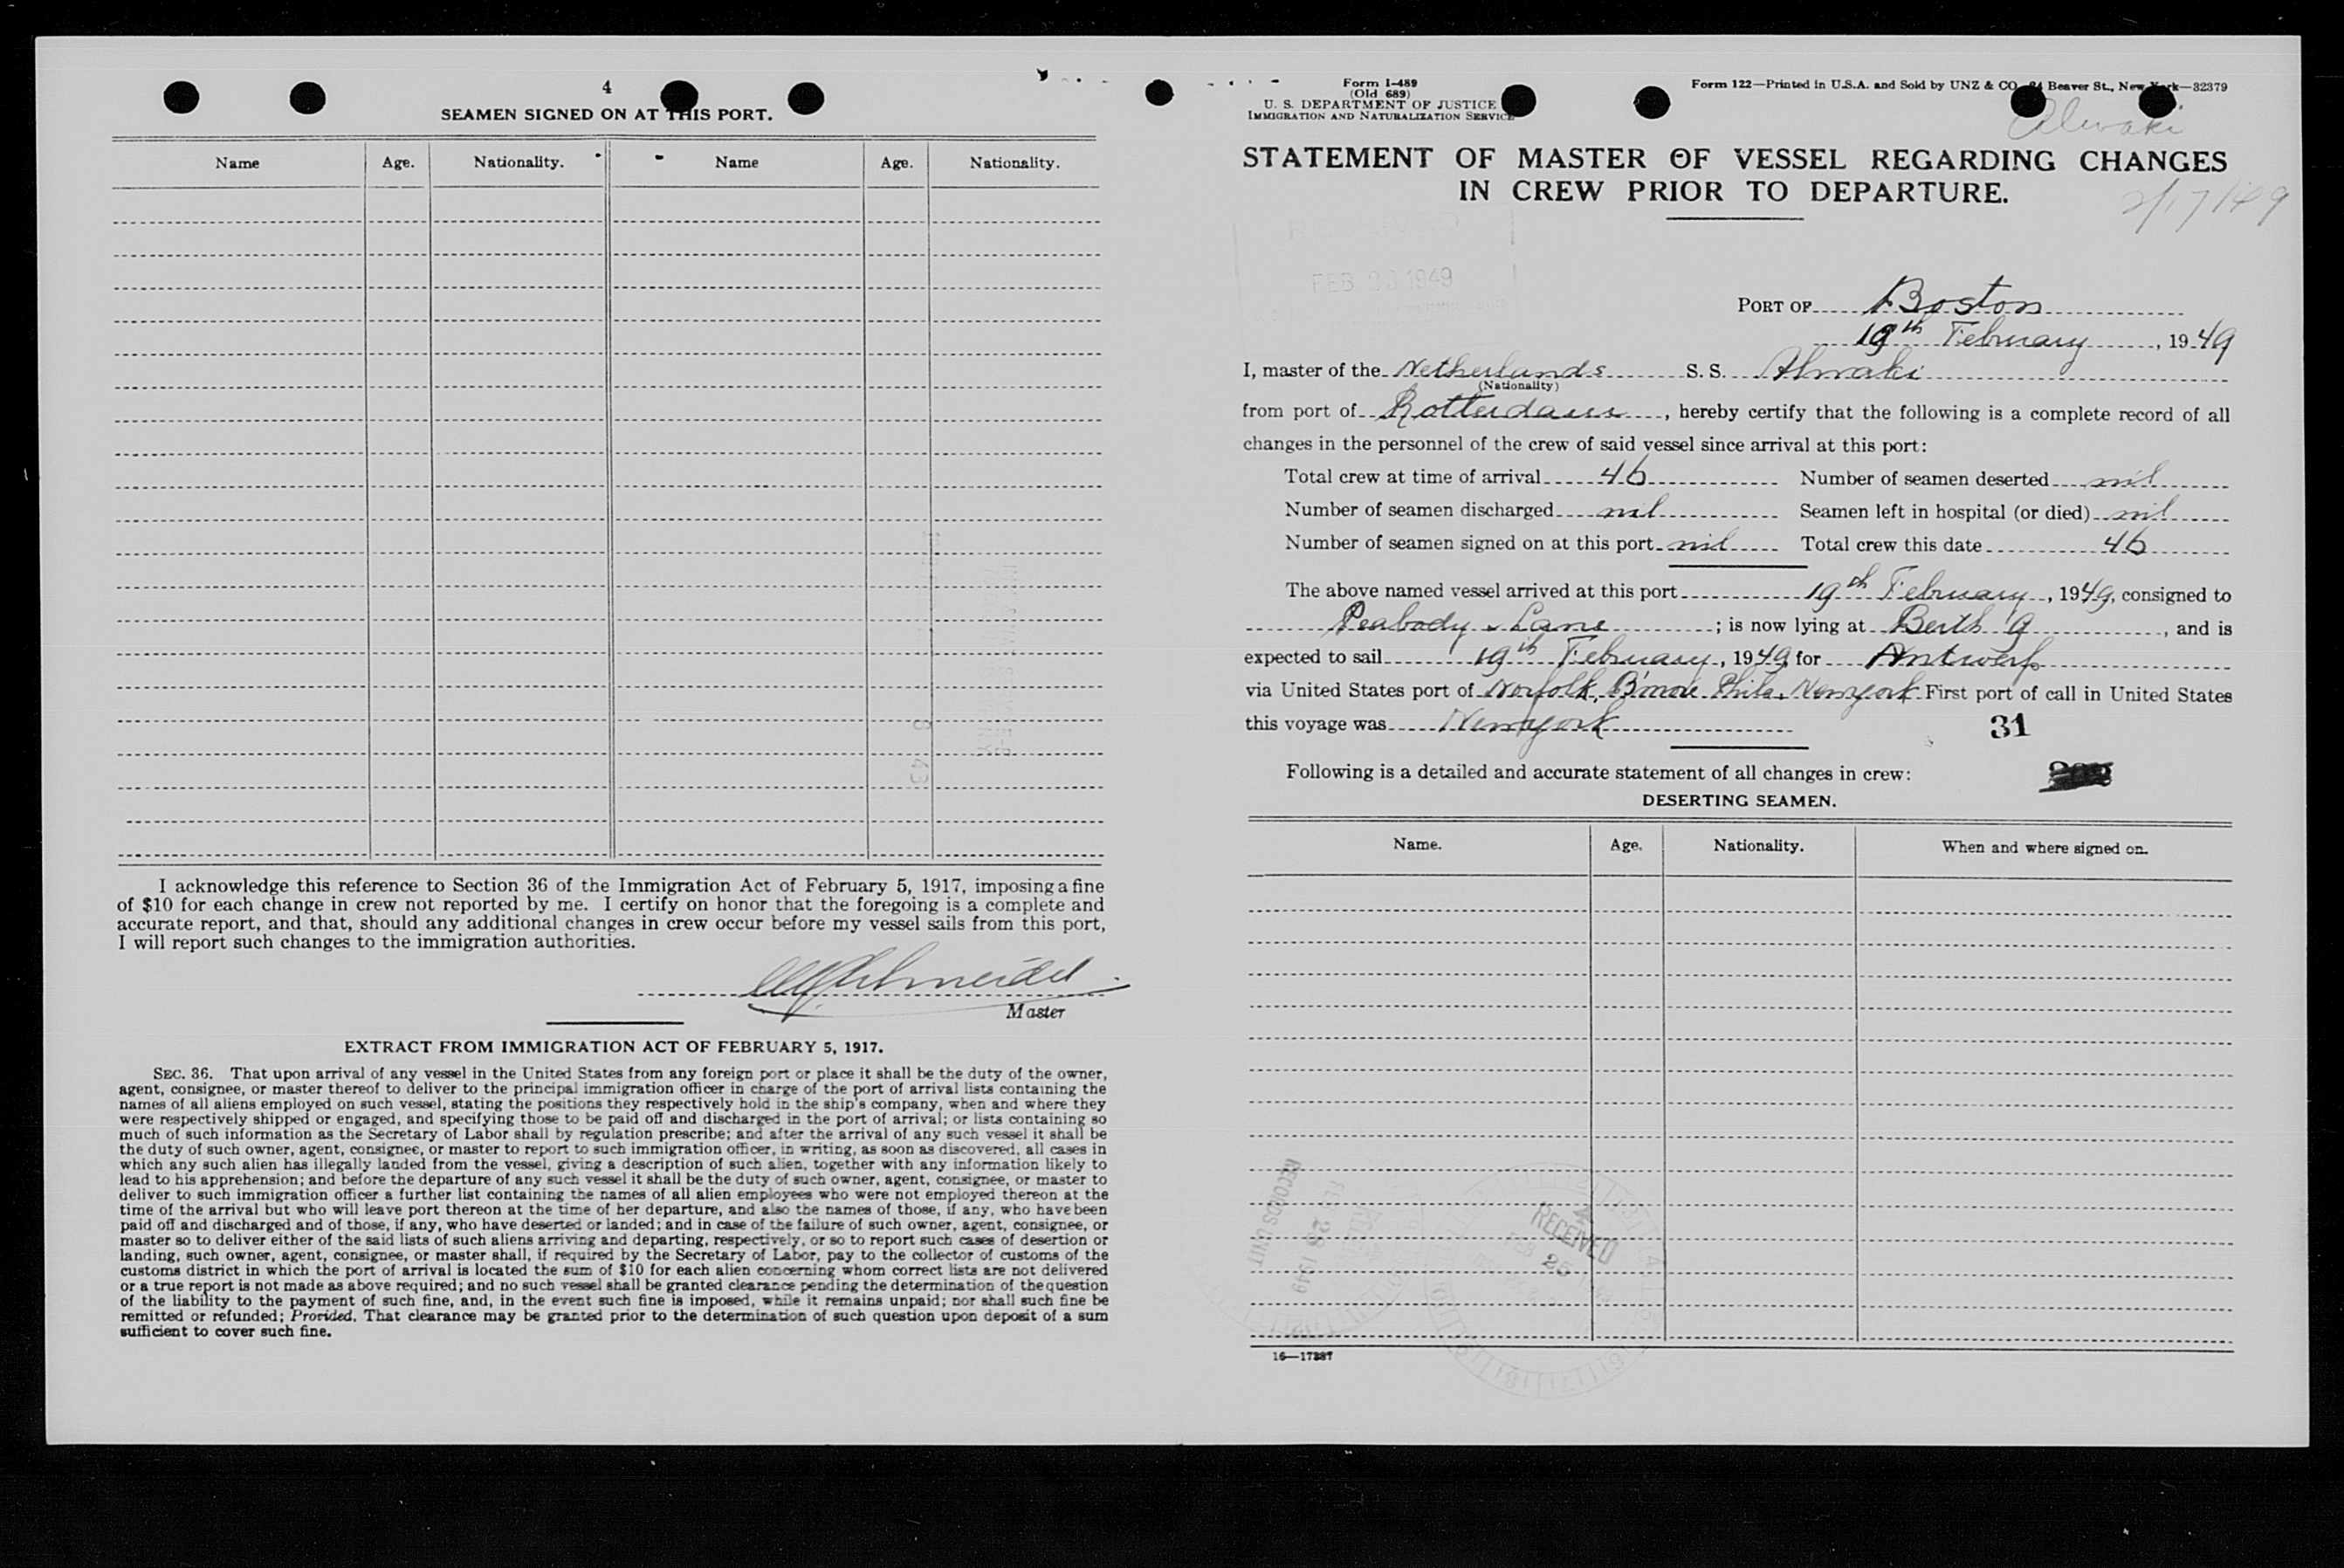 4
SEAMEN SIGNED ON AT THIS PORT.
Name Age. Nationality. Name Age. Nationality.
I acknowledge this reference to Section 36 of the Immigration Act of February 5, 1917, imposing a fine
of $10 for each change in crew not reported by me. I certify on honor that the foregoing is a complete and
accurate report, and that, should any additional changes in crew occur before my vessel sails from this port,
I will report such changes to the immigration authorities.
Master
EXTRACT FROM IMMIGRATION ACT OF FEBRUARY 5, 1917.
SEC. 36. That upon arrival of any vessel in the United States from any foreign port or place it shall be the duty of the owner,
agent, consignee, or master thereof to deliver to the principal immigration officer in charge of the port of arrival lists containing the
names of all aliens employed on such vessel, stating the positions they respectively hold in the ship's company, when and where they
were respectively shipped or engaged, and specifying those to be paid off and discharged in the port of arrival; or lists containing so
much of such information as the Secretary of Labor shall by regulation prescribe; and after the arrival of any such vessel it shall be
the duty of such owner, agent, consignee, or master to report to such immigration officer, in writing, as soon as discovered, all cases in
which any such alien has illegally landed from the vessel, giving a description of such alien, together with any information likely to
lead to his apprehension; and before the departure of any such vessel it shall be the duty of such owner, agent, consignee, or master to
deliver to such immigration officer a further list containing the names of all alien employees who were not employed thereon at the
time of the arrival but who will leave port thereon at the time of her departure, and also the names of those, if any, who have been
paid off and discharged and of those, if any, who have deserted or landed; and in case of the failure of such owner, agent, consignee, or
master so to deliver either of the said lists of such aliens arriving and departing, respectively, or so to report such cases of desertion or
landing, such owner, agent, consignee, or master shall, if required by the Secretary of Labor, pay to the collector of customs of the
customs district in which the port of arrival is located the sum of $10 for each alien concerning whom correct lists are not delivered
or a true report is not made as above required; and no such vessel shall be granted clearance pending the determination of the question
of the liability to the payment of such fine, and, in the event such fine is imposed, while it remains unpaid; nor shall such fine be
remitted or refunded; Provided, That clearance may be granted prior to the determination of such question upon deposit of a sum
sufficient to cover such fine.
Form I-489
(Old 689)
U. S. DEPARTMENT OF JUSTICE
IMMIGRATION AND NATURALIZATION SERVICE
Form 122—Printed in U.S.A. and Sold by UNZ & CO. 24 Beaver St., New York—32379
Alwaki
STATEMENT OF MASTER OF VESSEL REGARDING CHANGES
IN CREW PRIOR TO DEPARTURE.
2/17/49
FEB 23 1949
PORT OF Boston
19th February, 1949
I, master of the Netherlands S. S. Alwaki
(Nationality)
from port of Rotterdam, hereby certify that the following is a complete record of all
changes in the personnel of the crew of said vessel since arrival at this port:
Total crew at time of arrival 46 Number of seamen deserted nil
Number of seamen discharged nil Seamen left in hospital (or died) nil
Number of seamen signed on at this port nil Total crew this date 46
The above named vessel arrived at this port 19th February, 1949, consigned to
Peabody & Lane; is now lying at Berth 9, and is
expected to sail 19th February, 1949 for Antwerp
via United States port of Norfolk, B'more Phila. Newyork First port of call in United States
this voyage was Newyork
31
Following is a detailed and accurate statement of all changes in crew:
DESERTING SEAMEN.
Name. Age. Nationality. When and where signed on.
RECORDS UNIT
FEB 28 1949
RECEIVED
25
16—17387